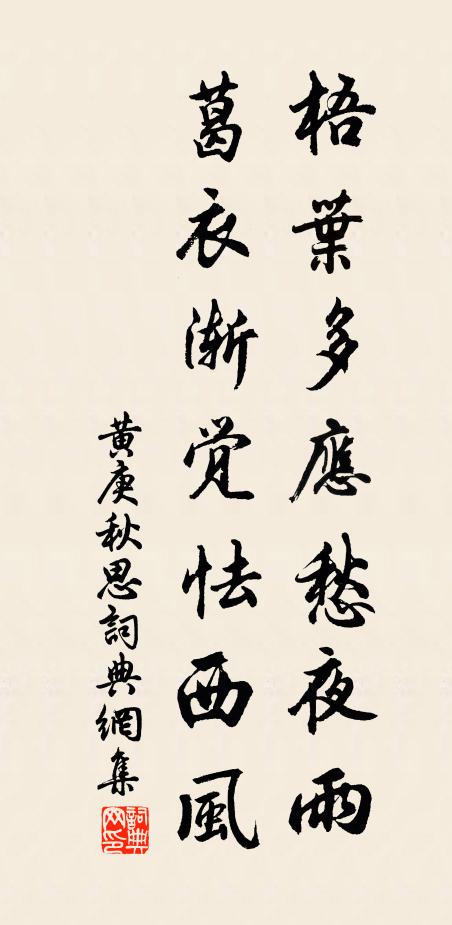 梧葉多應愁夜雨
葛衣漸覺怯西風
黃庚秋思詞典網集
詞典網印